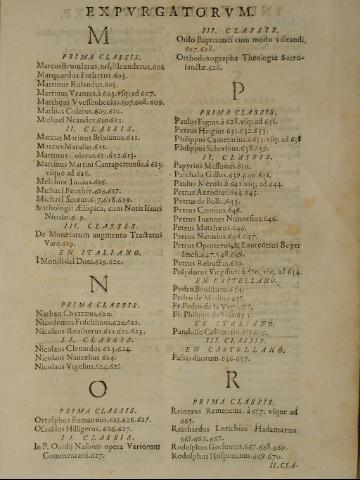 EXPVRGATORVM.
M
PRIMA CLASSIS.
Marcus Beumlerus, vel Beumlerius.602
Marquardus Freherus.603.
Martinus Rulandus.603.
Martinus Vranius.à 603.vsq; ad 607.
Matthęus Vvesenbecius.607.608.609.
Mathias Colerus.609.610.
Michael Neander.610.611.
II. CLASSIS.
Marcus Marinus Brixianus.611.
Marcus Marulus.611.
Martinus Colerus.611.612.613.
Martinus Martini Cantapetrensis.à 613.
vsque ad 615.
Melchior Iunius.616.
Michael Beuther.616.617.
Michael Scotus.617.618.619.
Mithologia Æsopica, cum Notis Isaaci
Nicolai
III. CLASSIS.
De Monetarum augmento Tractatus
Varij.619.
EN ITALIANO.
I Mondi del Doni.619.620.
N
PRIMA CLASSIS.
Nathan Chytræus.620.
Nicodemus Frischlinus.620.621.
Nicolaus Reusnerus.621.622.623.
II. CLASSIS.
Nicolaus Clenardus.623.624.
Nicolaus Nancelius.624.
Nicolaus Vigelius.624.625.
O
PRIMA CLASSIS.
Ortolphus Fomannus.625.626.627.
Osualdus Hilligerus.626.627.
II. CLASSIS.
In P. Ouidij Nasonis opera Variorum
Commentarij.627.
III. CLASSIS.
Ordo Baptizandi cum modo visitandi.
627.628.
Orthodoxographa Theologiæ Sacrosanctæ.626.
P
PRIMA CLASSIS.
Paulus Fagius.à 628.vsq; ad 631.
Petrus Heigius.631.632.633.
Philippus Camerarius.à 633.vsq; ad 638
Philippus Scherbius.638.639.
II. CLASSIS.
Papyrius Massonus.639.
Paschalis Gallus.639.640.641.
Paulus Merula.à 641.vsq; ad 644.
Petrus Aerodius.644.645.
Petrus de Bollo.645.
Petrus Crinitus.646.
Petrus Ioannes Nunnesius.646.
Petrus Matthæus.646.
Petrus Nannius.646.647.
Petrus Opmeerus, & Laurentius Beyerlinck.647.648.649.
Petrus Rebuffus.650.
Polydorus Virgilius.à 650. vsq; ad 654.
EN CASTELLANO.
Pedro
Pedro de Medina.655.
Fr. Pedro de la Vega.
Fr. Philippe de Sosa.
EN ITALIANO.
Pandolfo Collenuccio.
III. CLASSIS.
EN CASTELLANO.
Passio duorum.656.657.
R
PRIMA CLASSIS.
Reinerus Reineccius. à 657. vsque ad
665.
Reinhardus Lorichius Hadamarius.
665.666.667.
Rodolphus Goclenius.667.668.669.
Rodolphus Hospinianus.669.670.
II.CLA-